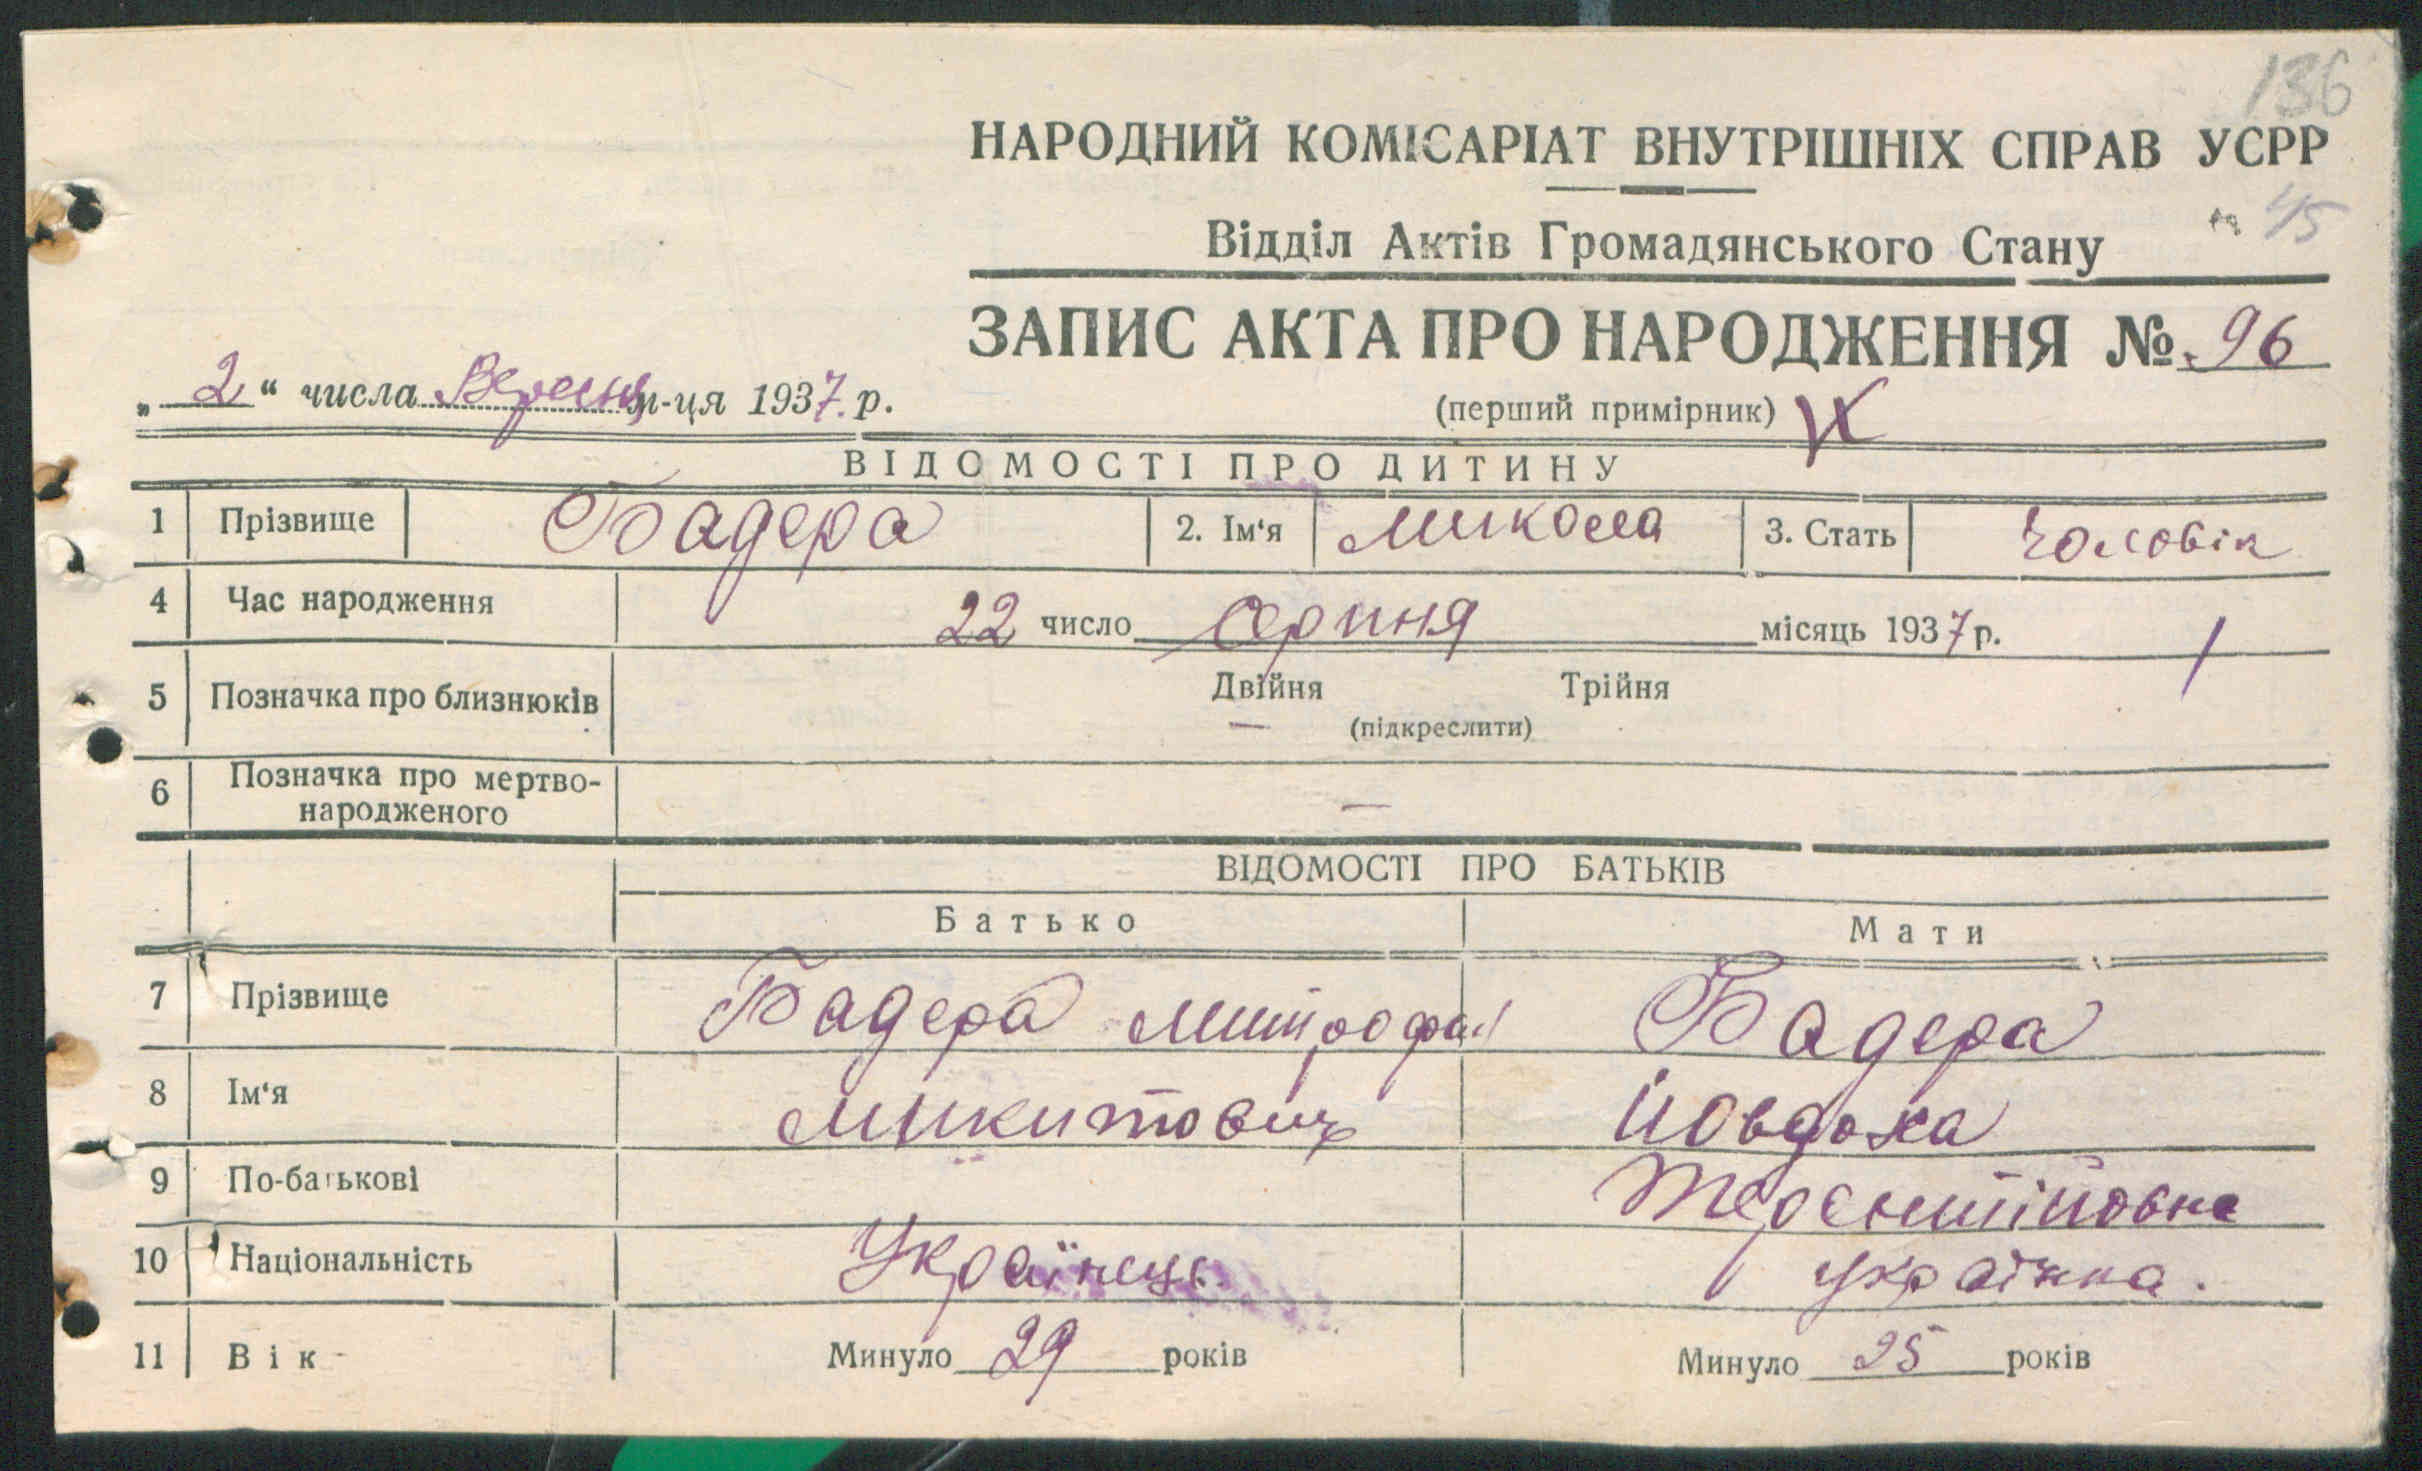 136
НАРОДНИЙ КОМІСАРІАТ ВНУТРІШНІХ СПРАВ УСРР
Відділ Актів Громадянського Стану
45
ЗАПИС АКТА ПРО НАРОДЖЕННЯ № 96
„ 2 “ числа Вересня м-ця 1937 р.
(перший примірник)
ВІДОМОСТІ ПРО ДИТИНУ
1 Прізвище Бадера 2. Ім‘я Микола 3. Стать Чоловік
4 Час народження 22 число Серпня місяць 1937 р.
5 Позначка про близнюків Двійня Трійня
— (підкреслити)
6 Позначка про мертво-
народженого —
ВІДОМОСТІ ПРО БАТЬКІВ
Батько Мати
7 Прізвище Бадера Митрофан Бадера
8 Ім‘я Микитович Йовдоха
9 По-батькові Терентійовна
10 Національність Українець українка.
11 Вік Минуло 29 років Минуло 25 років